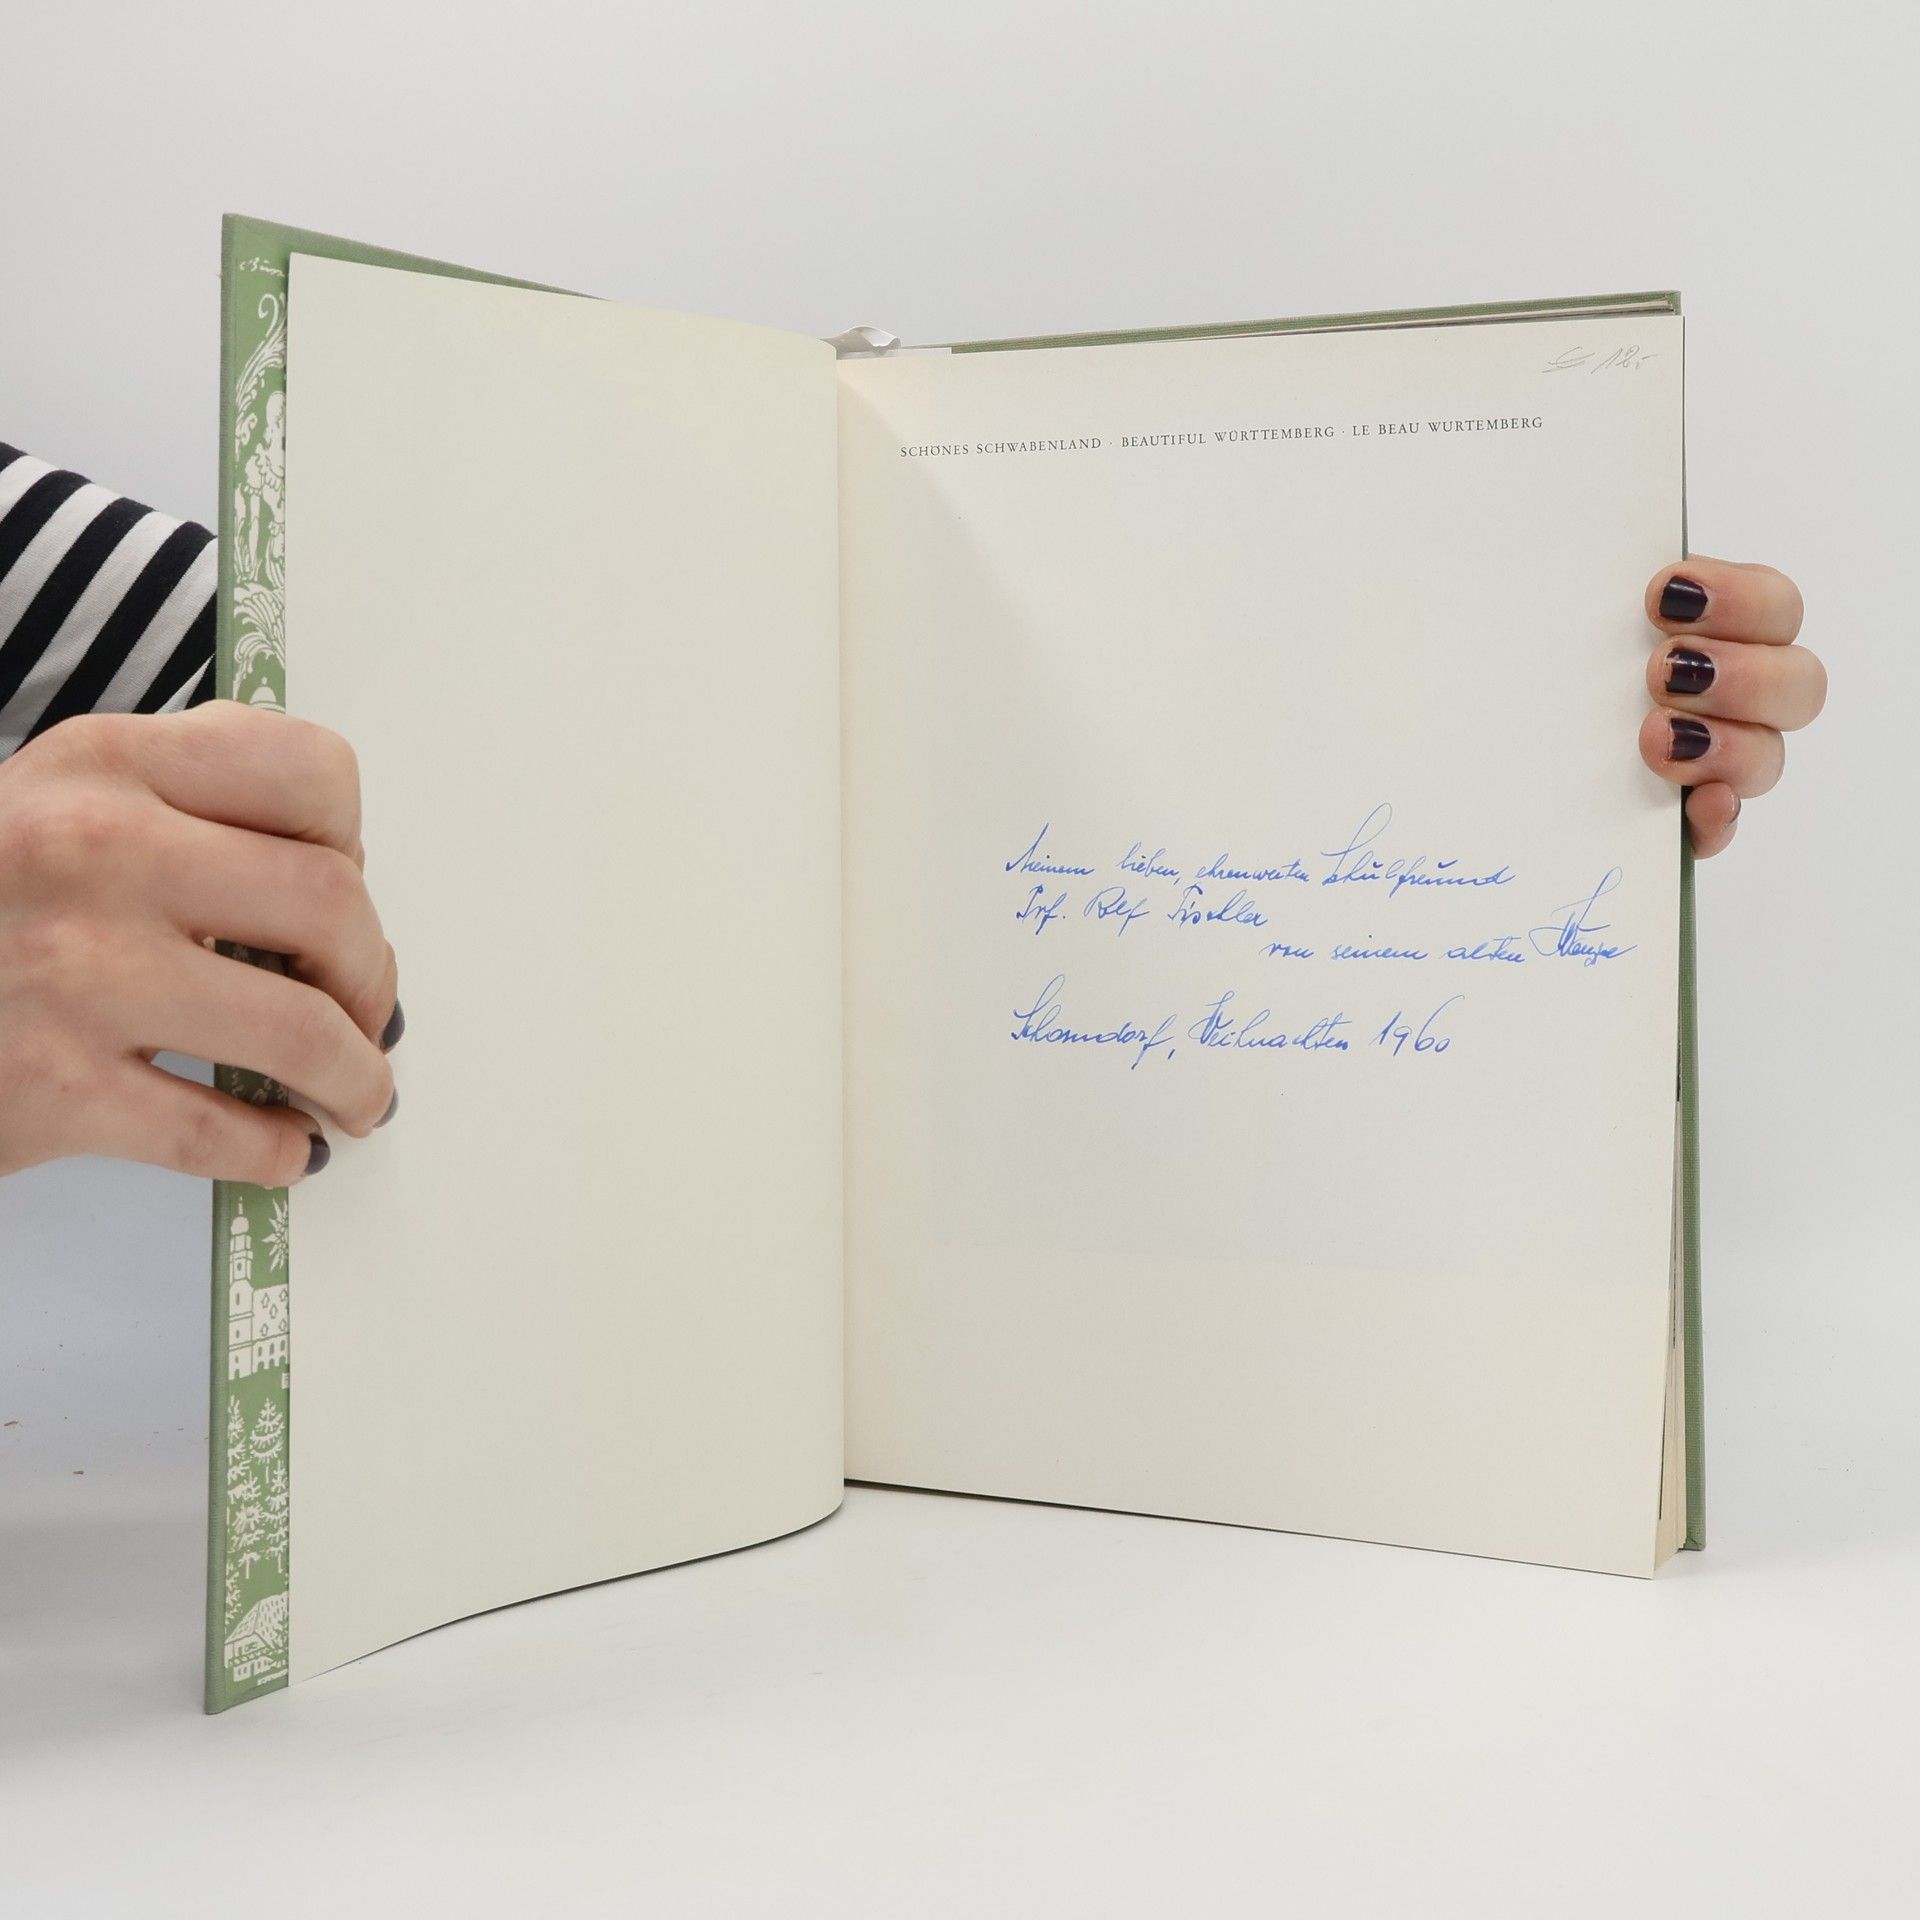 12.-
SCHÖNES SCHWABENLAND · BEAUTIFUL WÜRTTEMBERG · LE BEAU WURTEMBERG
Meinem lieben, ehrenwerten Schulfreund
Prf. Rolf Tischler
von seinem alten
Schorndorf, Weihnachten 1960